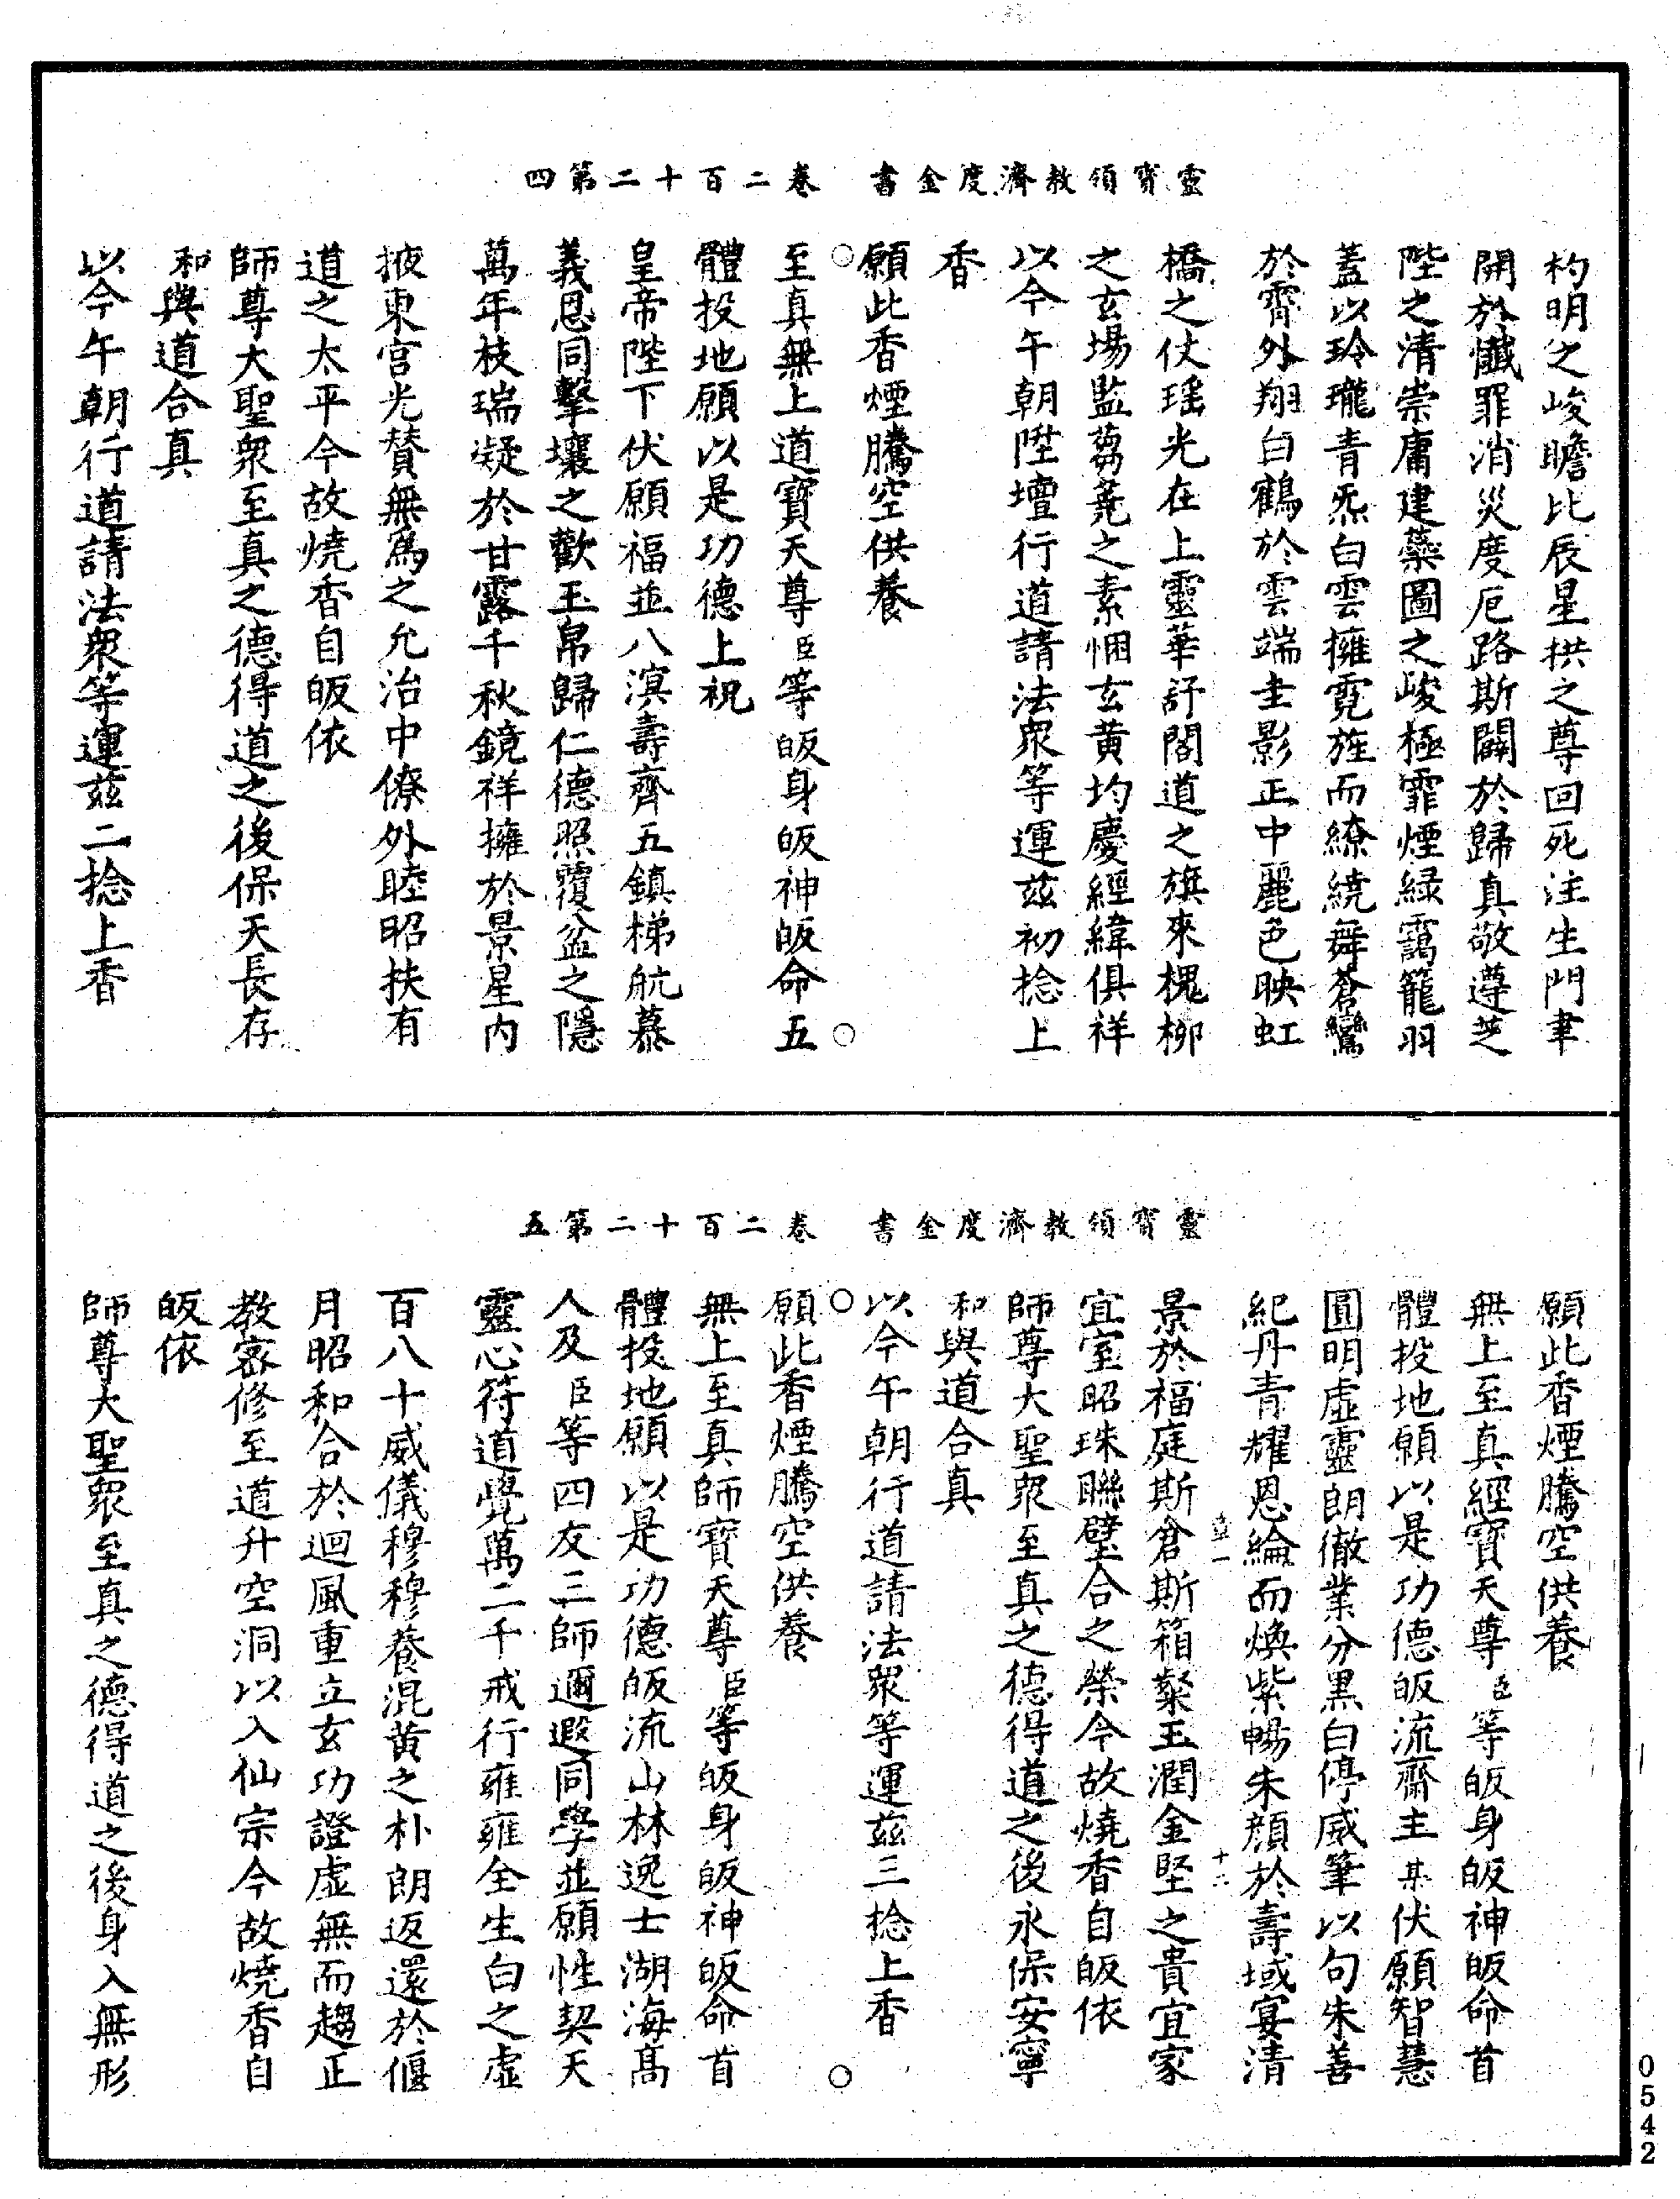 靈寶領教濟度金書　卷二百十二第四
杓明之峻瞻比辰星拱之尊回死注生門聿
開於懺罪消災度厄路斯闢於歸真敬遵芝
陛之清崇庸建蘂圖之峻極霏煙緑靄籠羽
蓋以玲瓏青炁白雲擁霓旌而繚繞舞蒼鸞
於霄外翔白鶴於雲端圭影正中麗色映虹
橋之仗瑤光在上靈華訝閣道之旗來槐柳
之玄場監芻蕘之素悃玄黄均慶經緯俱祥
以今午朝陞壇行道請法眾等運茲初捻上
香
願此香煙騰空供養
至真無上道寶天尊臣等皈身皈神皈命五
體投地願以是功德上祝
皇帝陛下伏願福並八溟壽齊五鎮梯航慕
義恩同擊壤之歡玉帛歸仁德照覆盆之隱
萬年枝瑞凝於甘露千秋鏡祥擁於景星内
掖東宫光賛無為之允治中僚外睦昭扶有
道之太平今故燒香自皈依
師尊大聖眾至真之德得道之後保天長存
和與道合真
以今午朝行道請法眾等運茲二捻上香
靈寶領教濟度金書　卷二百十二第五
願此香煙騰空供養
無上至真經寶天尊臣等皈身皈神皈命首
體投地願以是功德皈流齋主某伏願智慧
圓明虛靈朗徹業分黑白停威筆以句朱善
紀丹青耀恩綸而煥紫暢朱顔於壽域宴清
景於福庭斯倉斯箱粲玉潤金堅之貴宜家
宜室昭珠聯璧合之榮今故燒香自皈依
師尊大聖眾至真之德得道之後永保安寧
和與道合真
以今午朝行道請法眾等運茲三捻上香
願此香煙騰空供養
無上至真師寶天尊臣等皈身皈神皈命首
體投地願以是功德皈流山林逸士湖海髙
人及臣等四友三師邇遐同學並願性契天
靈心符道覺萬二千戒行雍雍全生白之虛
百八十威儀穆穆養混黄之朴朗返還於偃
月昭和合於迴風重立玄功證虛無而趨正
教密修至道升空洞以入仙宗今故燒香自
皈依
師尊大聖眾至真之德得道之後身入無形
0542